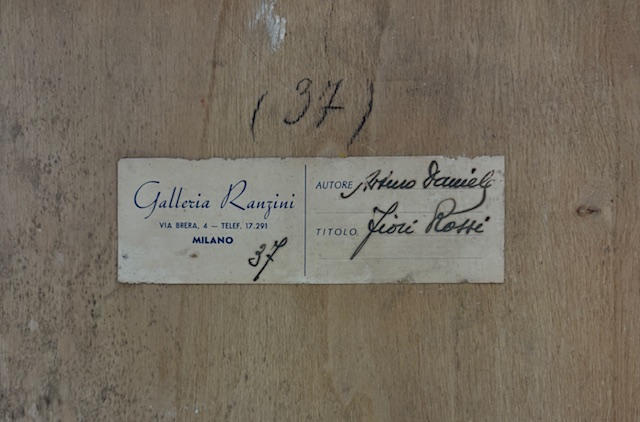 (37)
Galleria Ranzini
VIA BRERA, 4 — TELEF. 17.291
MILANO
37
AUTORE Arsino Daniele
TITOLO Fiori Rossi